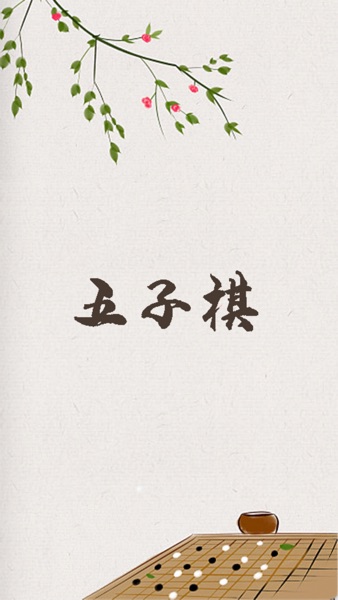 五子棋